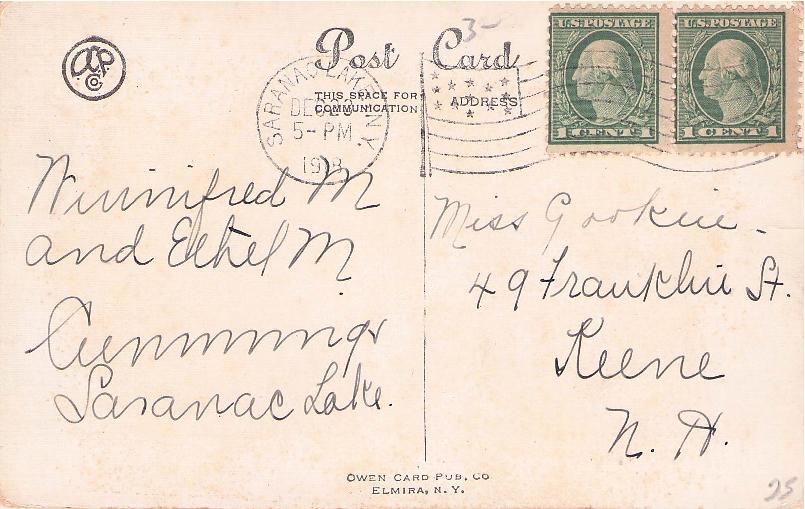 Post Card
3-
U.S. POSTAGE
1 CENT 1
U.S. POSTAGE
1 CENT 1
THIS SPACE FOR
COMMUNICATION
ADDRESS
SARANAC LAKE N.Y.
DEC 23
5- PM
1918
Winnifred M
and Ethel M
Cummings
Saranac Lake.
Miss Gookin -
49 Franklin St.
Keene
N. H.
OWEN CARD PUB. CO
ELMIRA, N. Y.
25